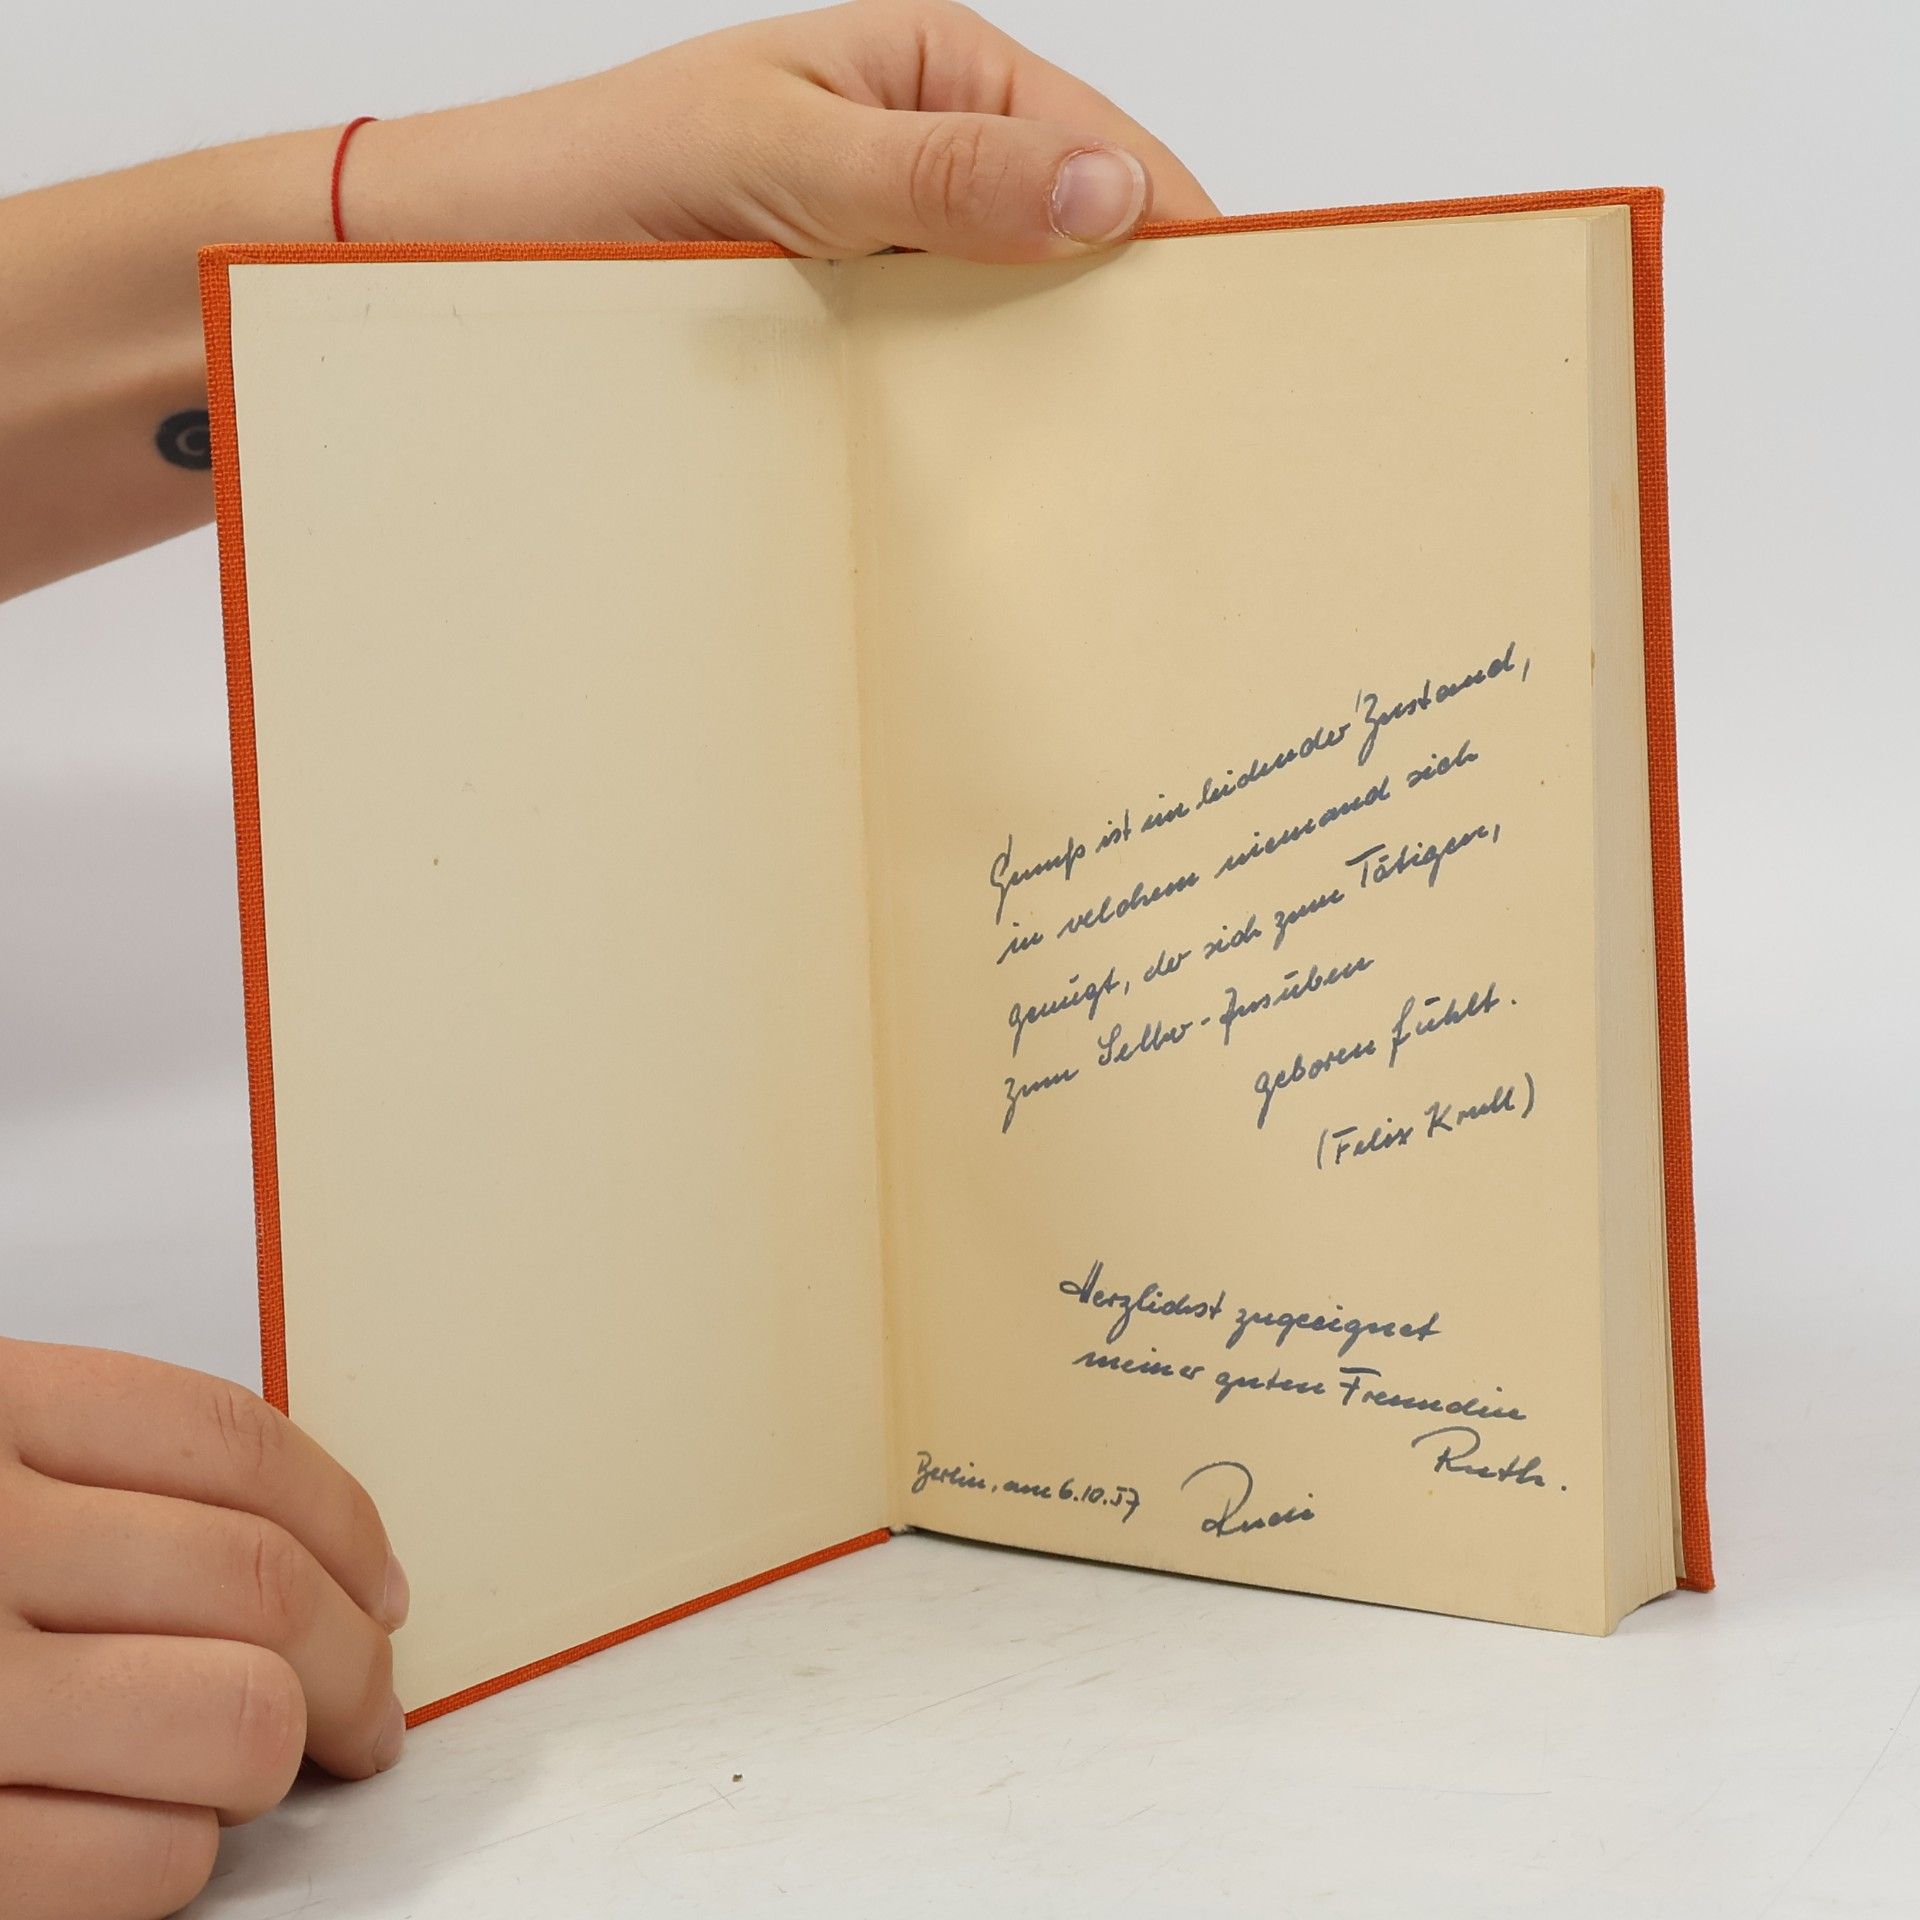 Genuß ist ein leidender Zustand,
in welchem niemand sich
genügt, der sich zum Tätigen,
zum Selber-Ausüben
geboren fühlt.
(Felix Krull)
Herzlichst zugeeignet
meiner guten Freundin
Ruth.
Berlin, am 6.10.57
Rudi